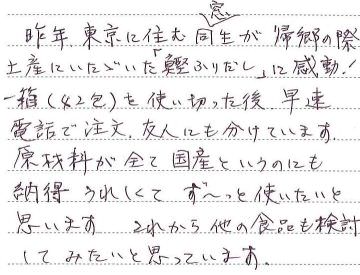 昨年 東京に住む 同窓生が 帰郷の際
土産にいただいた「鰹ふりだし」に感動!
一箱(42包)を使い切った後 早速
電話で注文、友人にも分けています。
原材料が全て国産というのにも
納得 うれしくて ず〜っと使いたいと
思います これから他の食品も検討
してみたいと思っています。